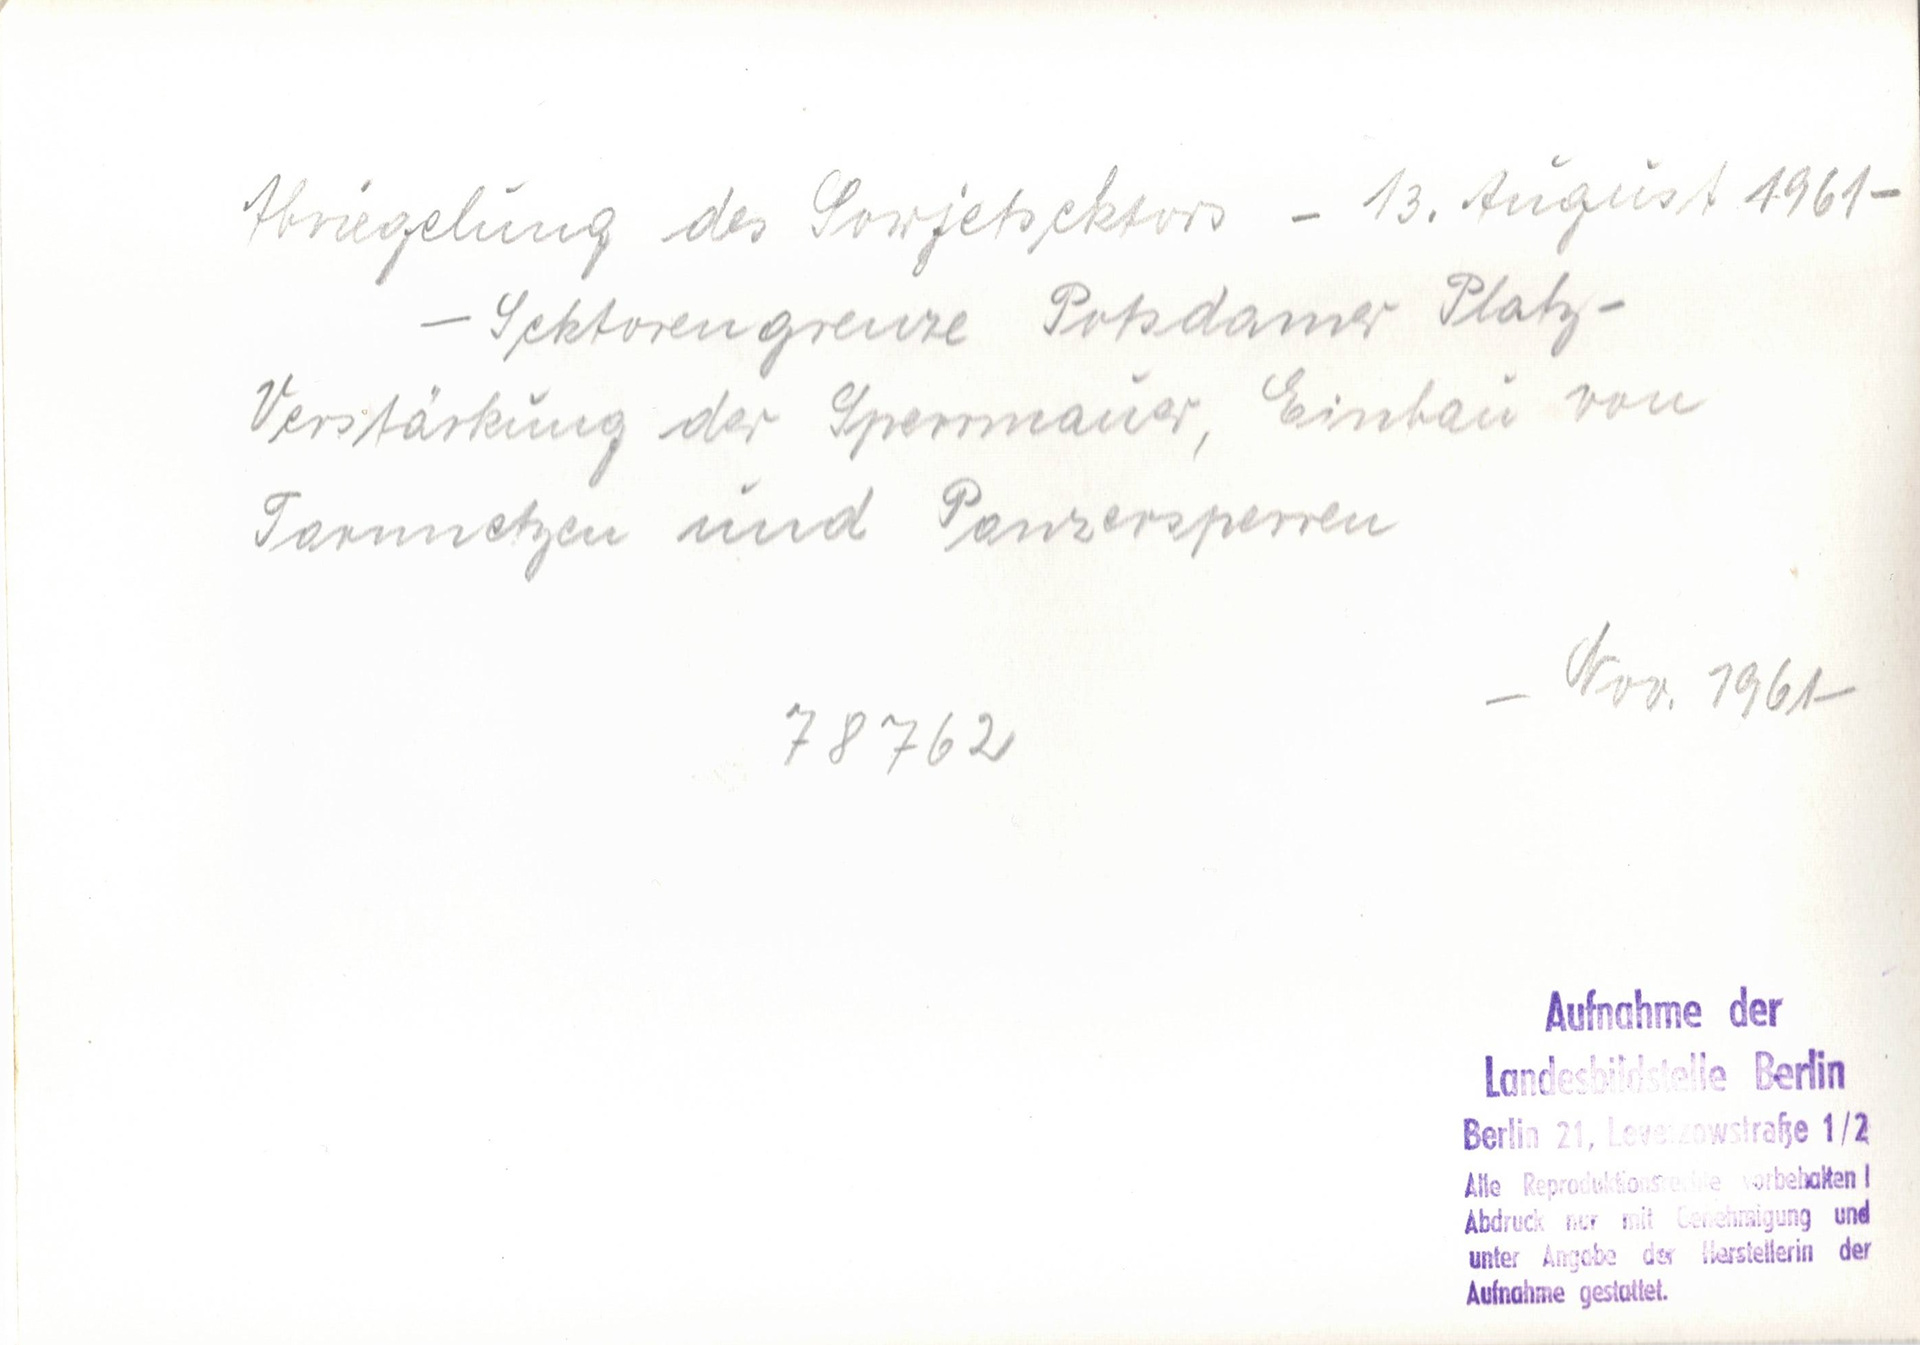 Abriegelung des Sowjetsektors – 13. August 1961 –
– Sektorengrenze Potsdamer Platz –
Verstärkung der Sperrmauer, Einbau von
Tarnnetzen und Panzersperren
– Nov. 1961 –
78762
Aufnahme der
Landesbildstelle Berlin
Berlin 21, Levetzowstraße 1/2
Alle Reproduktionsrechte vorbehalten!
Abdruck nur mit Genehmigung und
unter Angabe der Herstellerin der
Aufnahme gestattet.